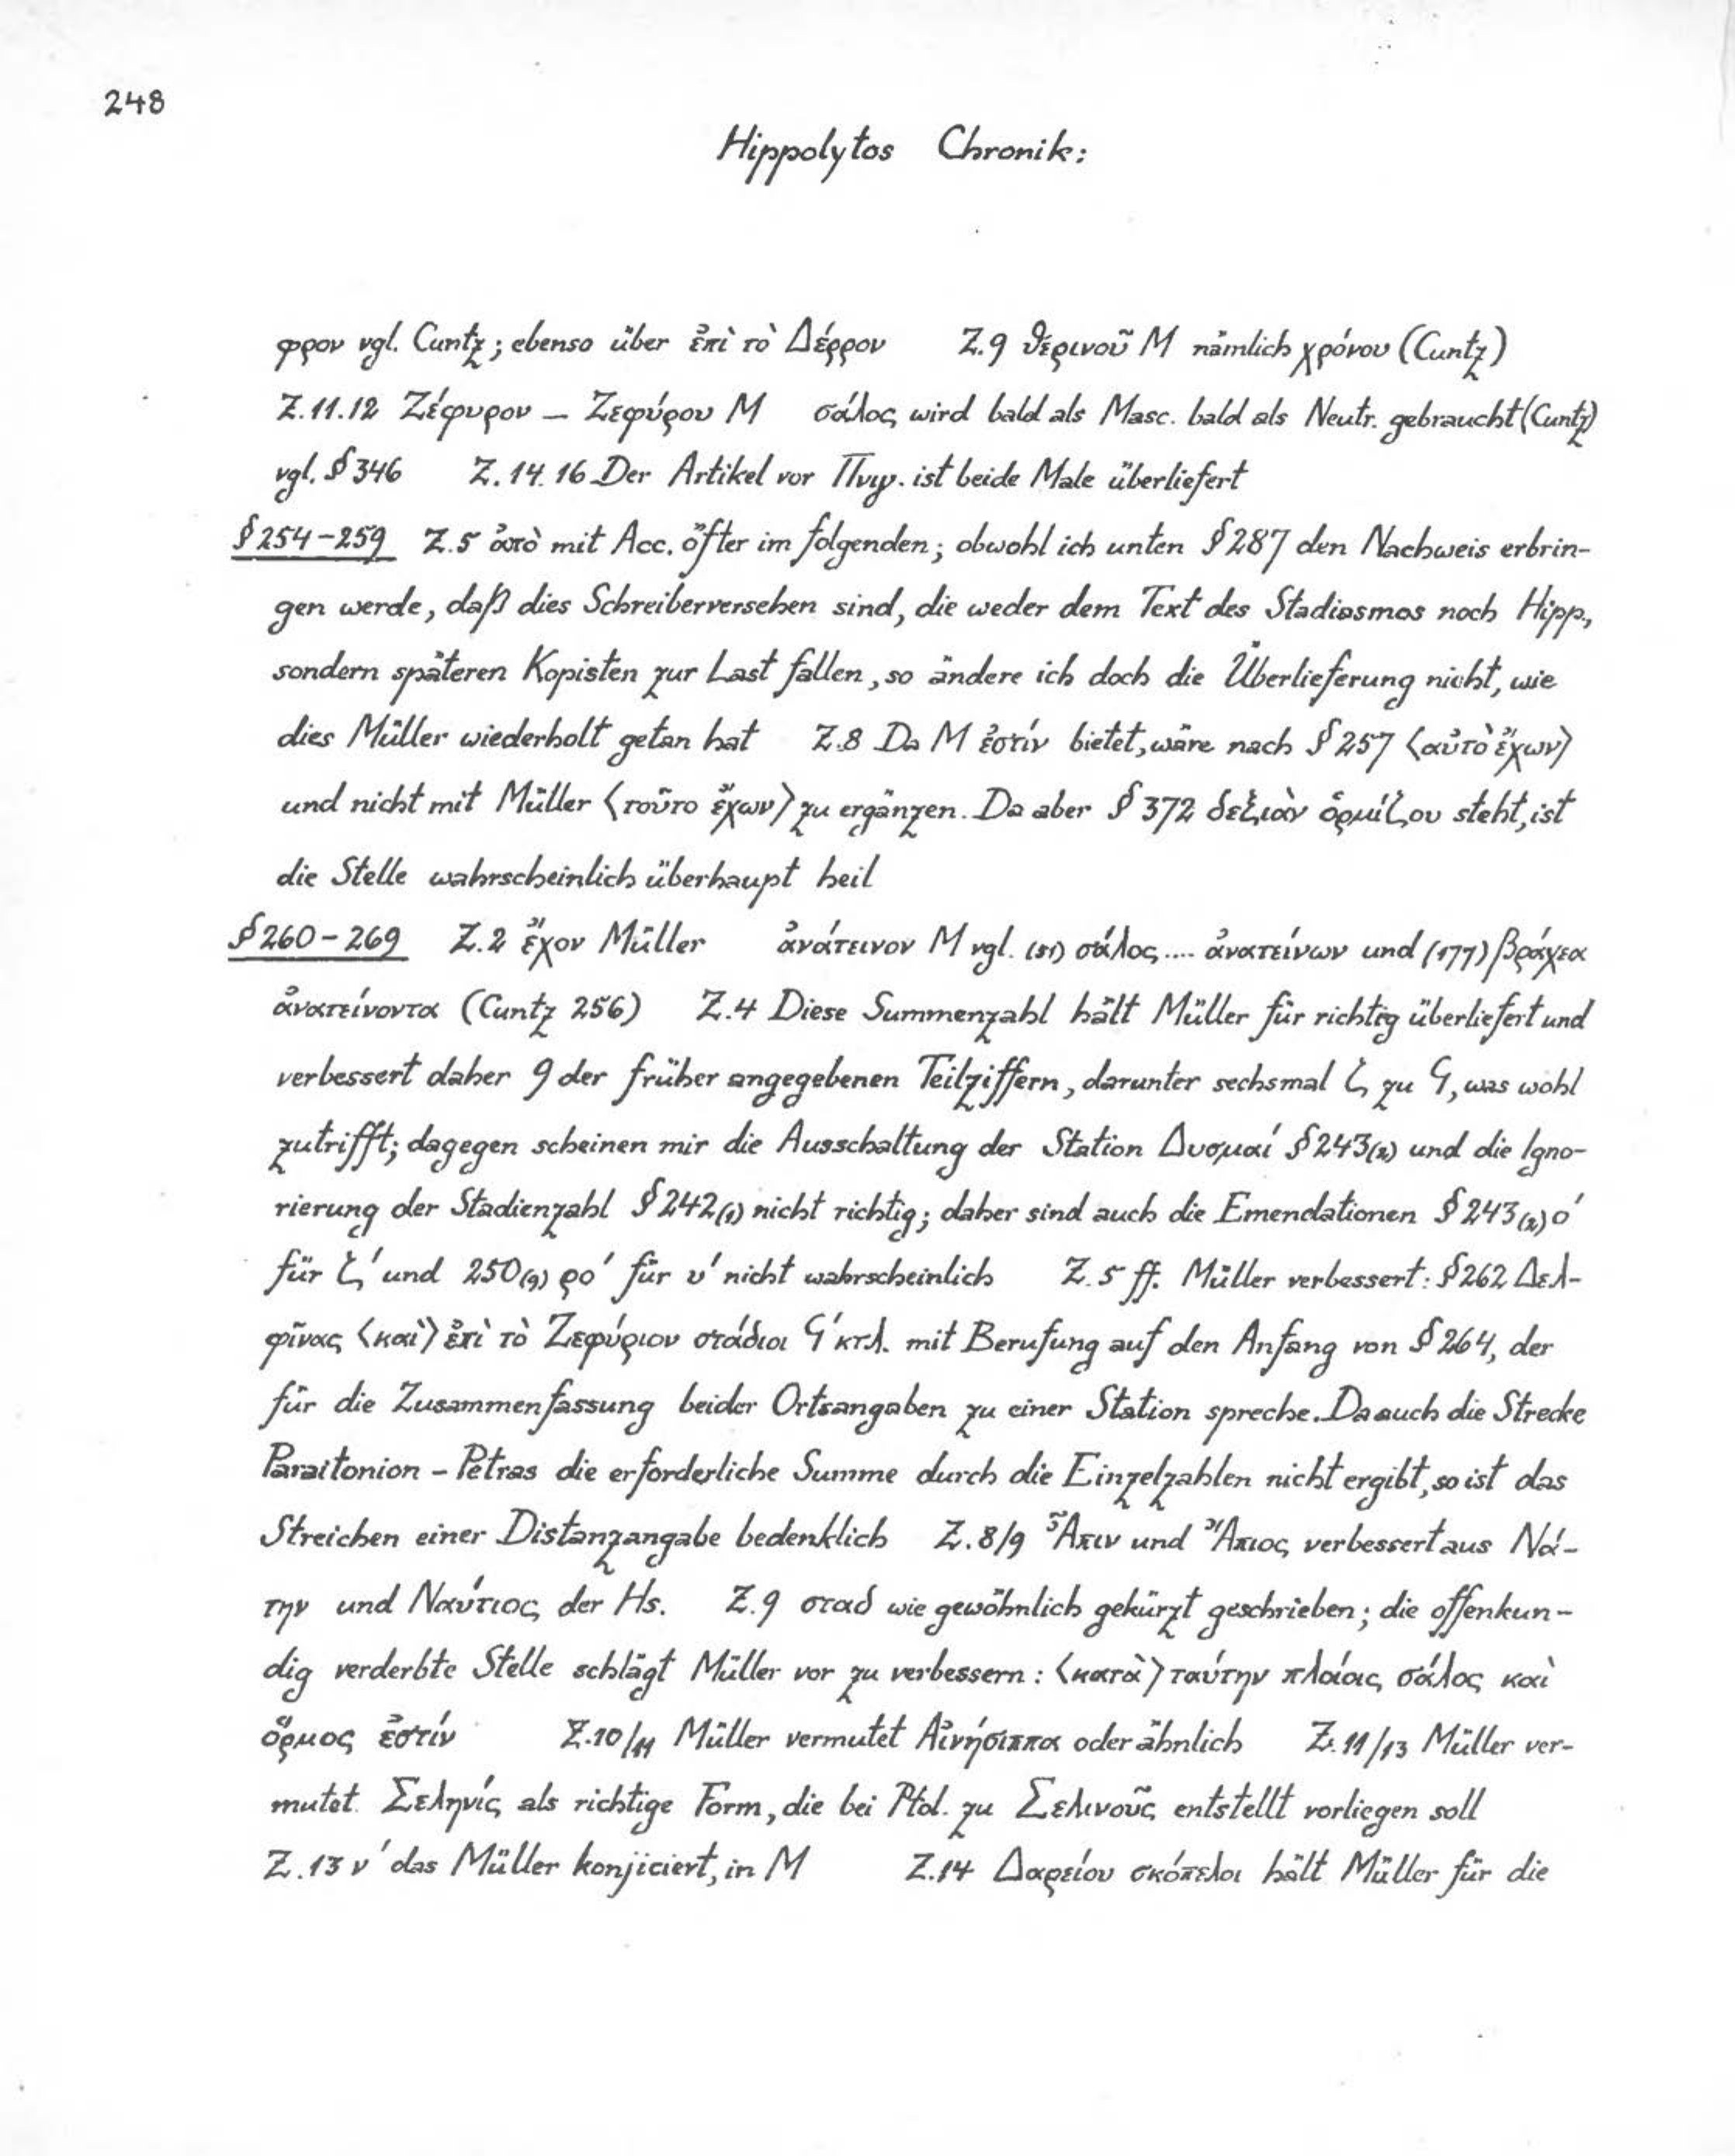 248
Hippolytos Chronik:
φρον vgl. Cuntz; ebenso über ἐπὶ τὸ Δέρρον Z.9 θερινοῦ M nämlich χρόνου (Cuntz)
Z.11.12 Ζέφυρον – Ζεφύρου M σάλος wird bald als Masc. bald als Neutr. gebraucht (Cuntz)
vgl. § 346 Z.14.16 Der Artikel vor Πνιγ. ist beide Male überliefert
§ 254-259 Z.5 ἀπὸ mit Acc. öfter im folgenden; obwohl ich unten § 287 den Nachweis erbrin-
gen werde, daß dies Schreiberversehen sind, die weder dem Text des Stadiasmos noch Hipp.,
sondern späteren Kopisten zur Last fallen, so ändere ich doch die Überlieferung nicht, wie
dies Müller wiederholt getan hat Z.8 Da M ἐστίν bietet, wäre nach § 257 ⟨αὐτὸ ἔχων⟩
und nicht mit Müller ⟨τοῦτο ἔχων⟩ zu ergänzen. Da aber § 372 δεξιὰν ὁρμίζου steht, ist
die Stelle wahrscheinlich überhaupt heil
§ 260-269 Z.2 ἔχον Müller ἀνάτεινον M vgl. (51) σάλος .... ἀνατείνων und (177) βράχεα
ἀνατείνοντα (Cuntz 256) Z.4 Diese Summenzahl hält Müller für richtig überliefert und
verbessert daher 9 der früher angegebenen Teilziffern, darunter sechsmal ζ zu Ϟ, was wohl
zutrifft; dagegen scheinen mir die Ausschaltung der Station Δυσμαί § 243(2) und die Igno-
rierung der Stadienzahl § 242(1) nicht richtig; daher sind auch die Emendationen § 243(2) ο'
für ζ' und 250(9) ρο' für υ' nicht wahrscheinlich Z.5 ff. Müller verbessert: § 262 Δελ-
φῖνας ⟨καὶ⟩ ἐπὶ τὸ Ζεφύριον στάδιοι Ϟ' κτλ. mit Berufung auf den Anfang von § 264, der
für die Zusammenfassung beider Ortsangaben zu einer Station spreche. Da auch die Strecke
Paraitonion – Petras die erforderliche Summe durch die Einzelzahlen nicht ergibt, so ist das
Streichen einer Distanzangabe bedenklich Z.8/9 Ἆπιν und Ἄπιος verbessert aus Νά-
την und Ναύτιος der Hs. Z.9 σταδ wie gewöhnlich gekürzt geschrieben; die offenkun-
dig verderbte Stelle schlägt Müller vor zu verbessern: ⟨κατὰ⟩ ταύτην πλοίοις σάλος καὶ
ὅρμος ἐστίν Z.10/11 Müller vermutet Αἰνήσιππα oder ähnlich Z.11/13 Müller ver-
mutet Σεληνίς als richtige Form, die bei Ptol. zu Σελινοῦς entstellt vorliegen soll
Z.13 ν' das Müller konjiciert, in M Z.14 Δαρείου σκόπελοι hält Müller für die